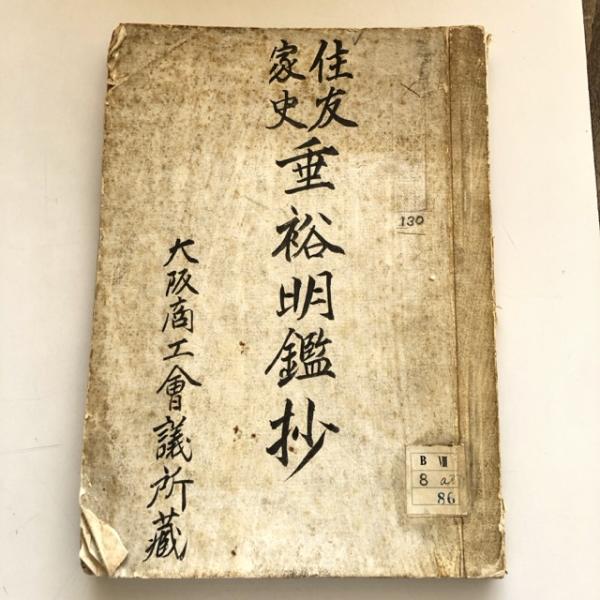 住友
家史
垂裕明鑑抄
大阪商工會議所藏
130
B VIII
8 a2
86